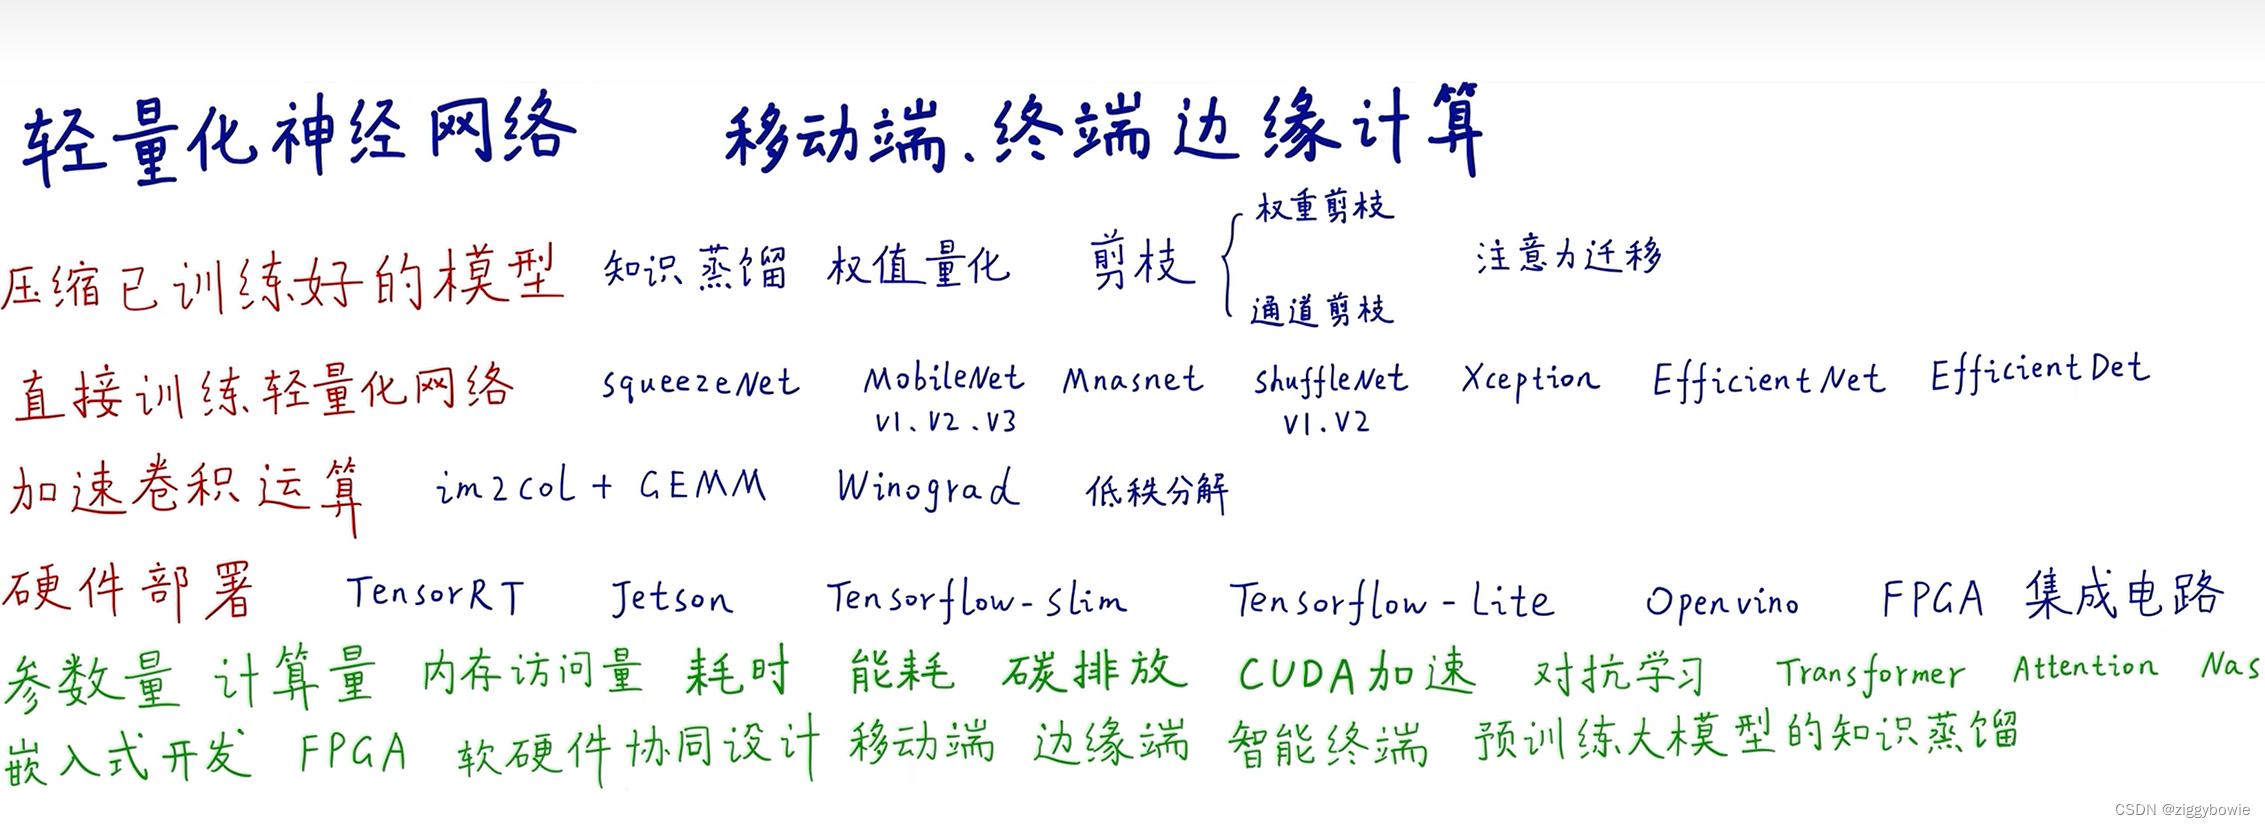 轻量化神经网络 移动端、终端边缘计算
压缩已训练好的模型 知识蒸馏 权值量化 剪枝 { 权重剪枝 注意力迁移
通道剪枝
直接训练轻量化网络 SqueezeNet MobileNet Mnasnet ShuffleNet Xception EfficientNet EfficientDet
V1、V2、V3 V1、V2
加速卷积运算 im2col + GEMM Winograd 低秩分解
硬件部署 TensorRT Jetson Tensorflow-slim Tensorflow-Lite Openvino FPGA 集成电路
参数量 计算量 内存访问量 耗时 能耗 碳排放 CUDA加速 对抗学习 Transformer Attention Nas
嵌入式开发 FPGA 软硬件协同设计 移动端 边缘端 智能终端 预训练大模型的知识蒸馏
CSDN @ziggybowie